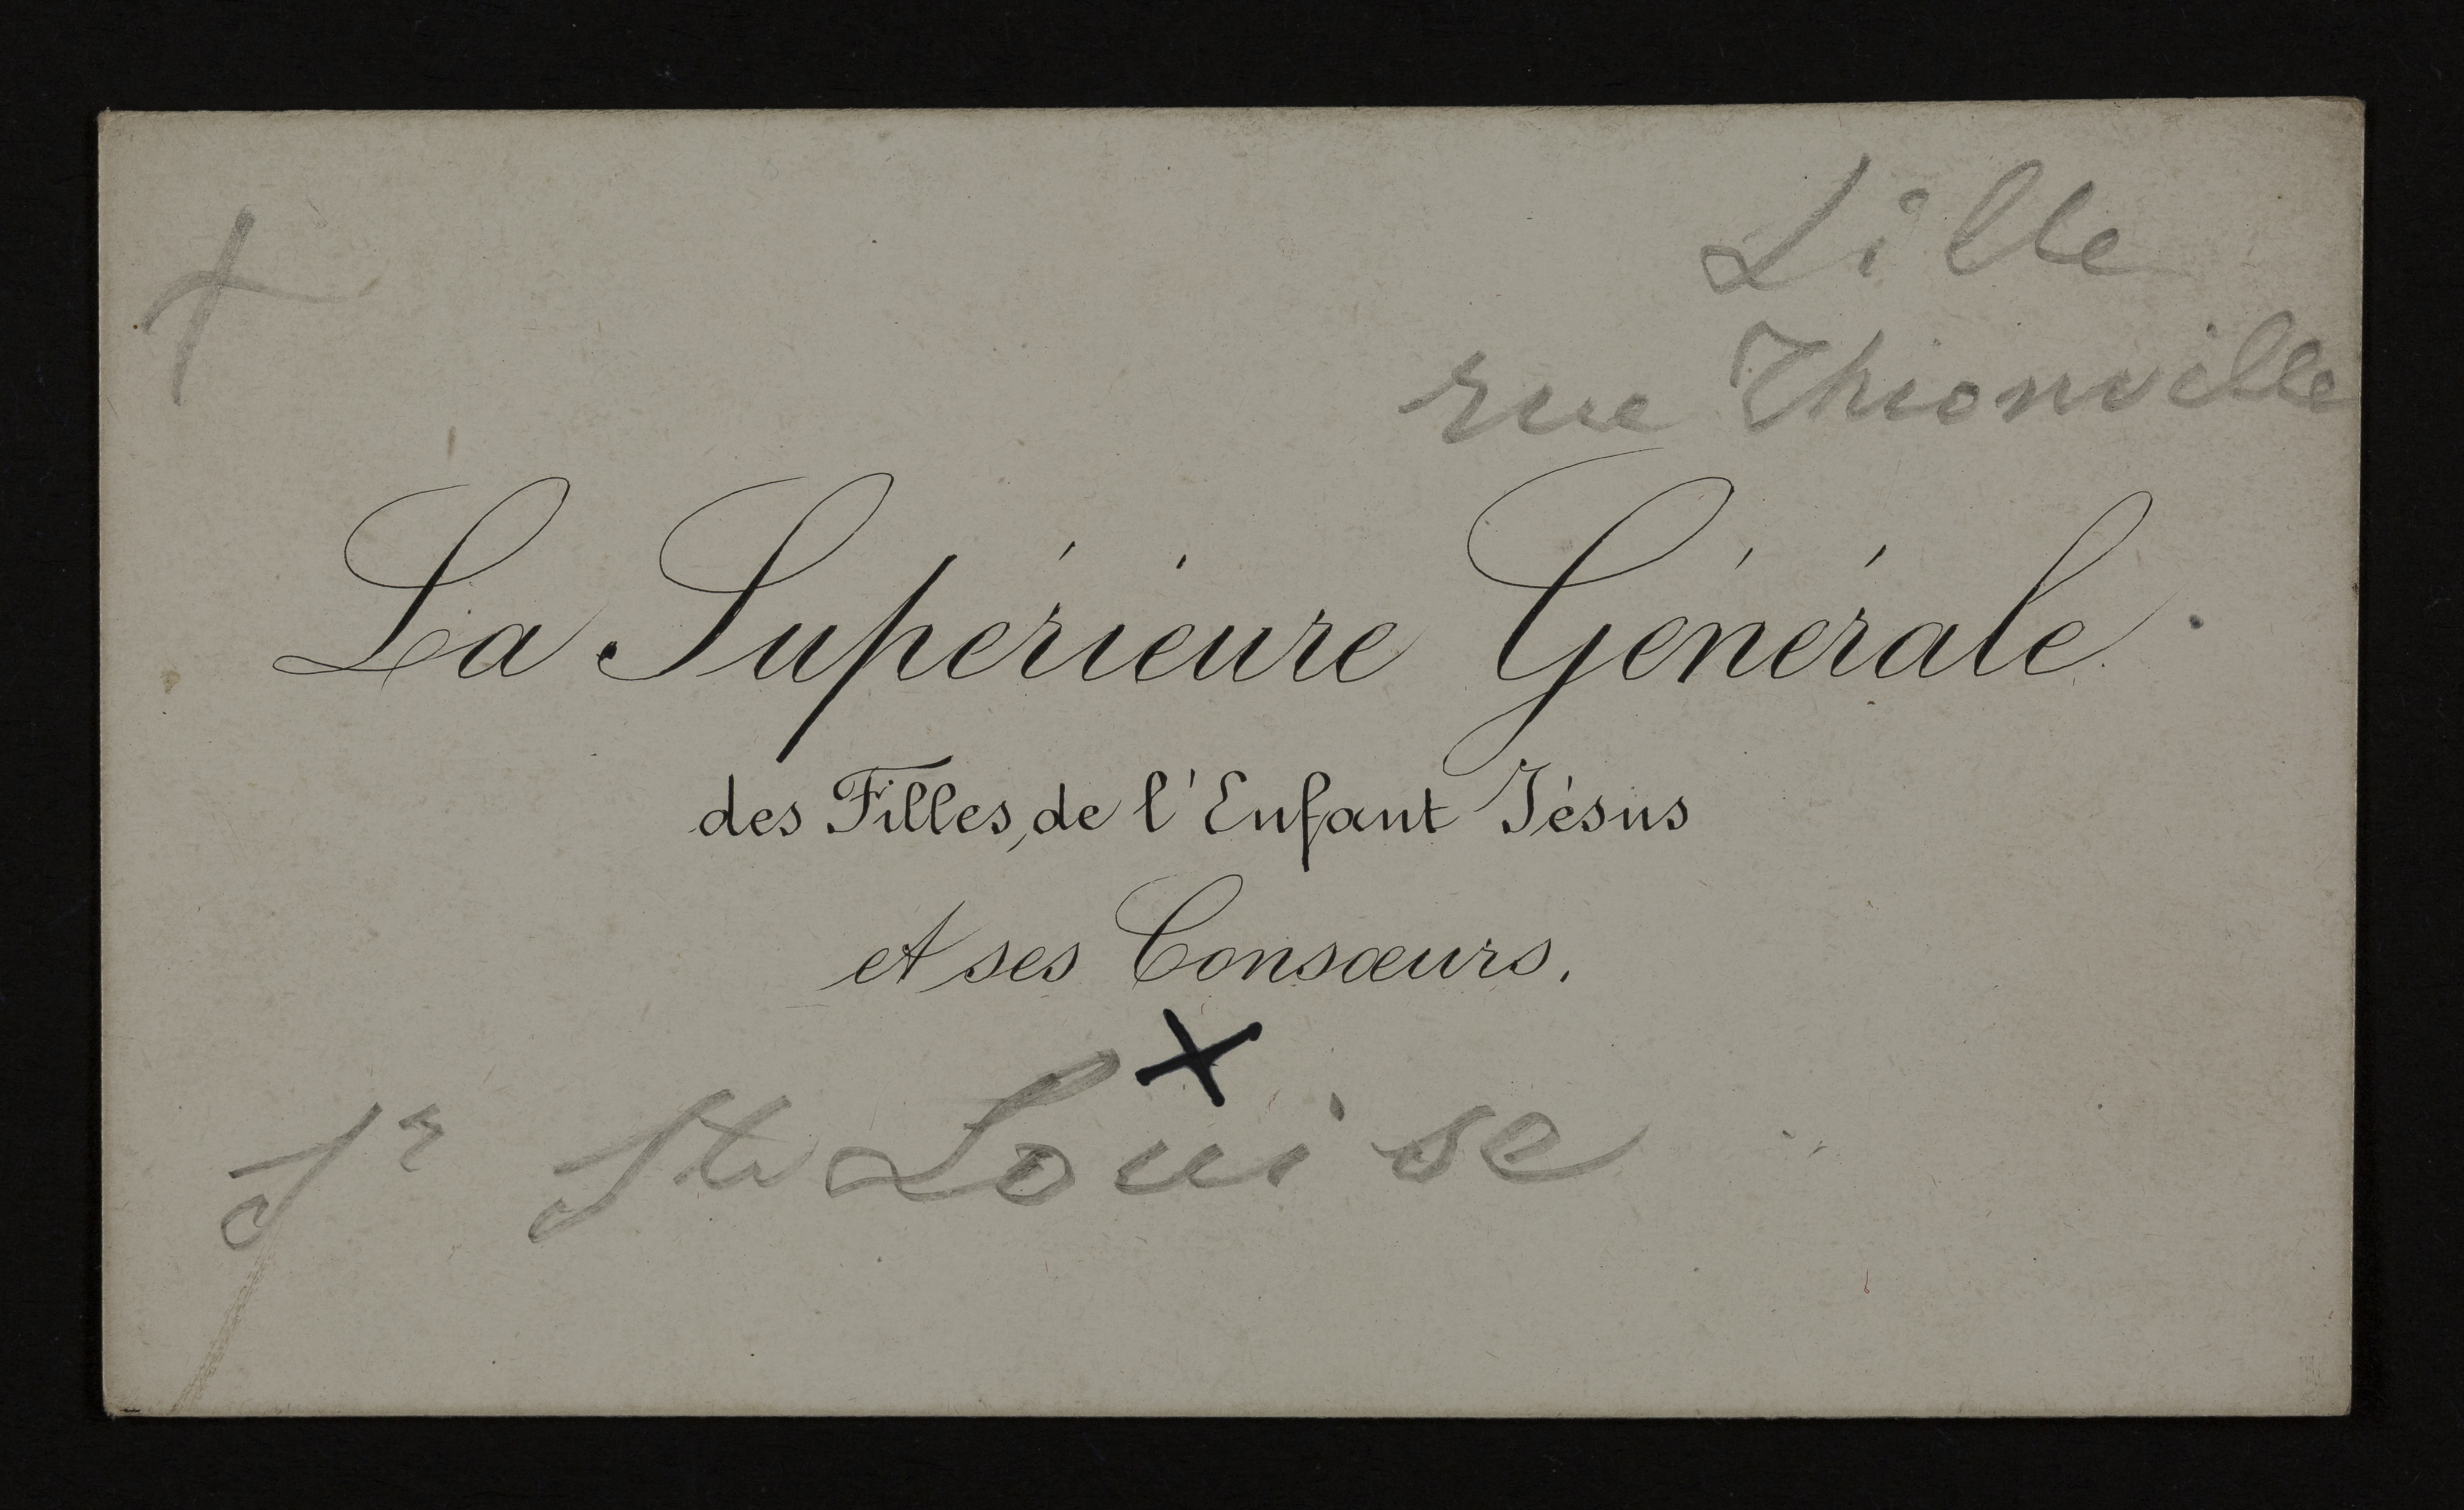 Lille
rue Thionville
La Supérieure Générale
des Filles, de l'Enfant Jésus
et ses Consœurs.
X
Sr Ste Louise